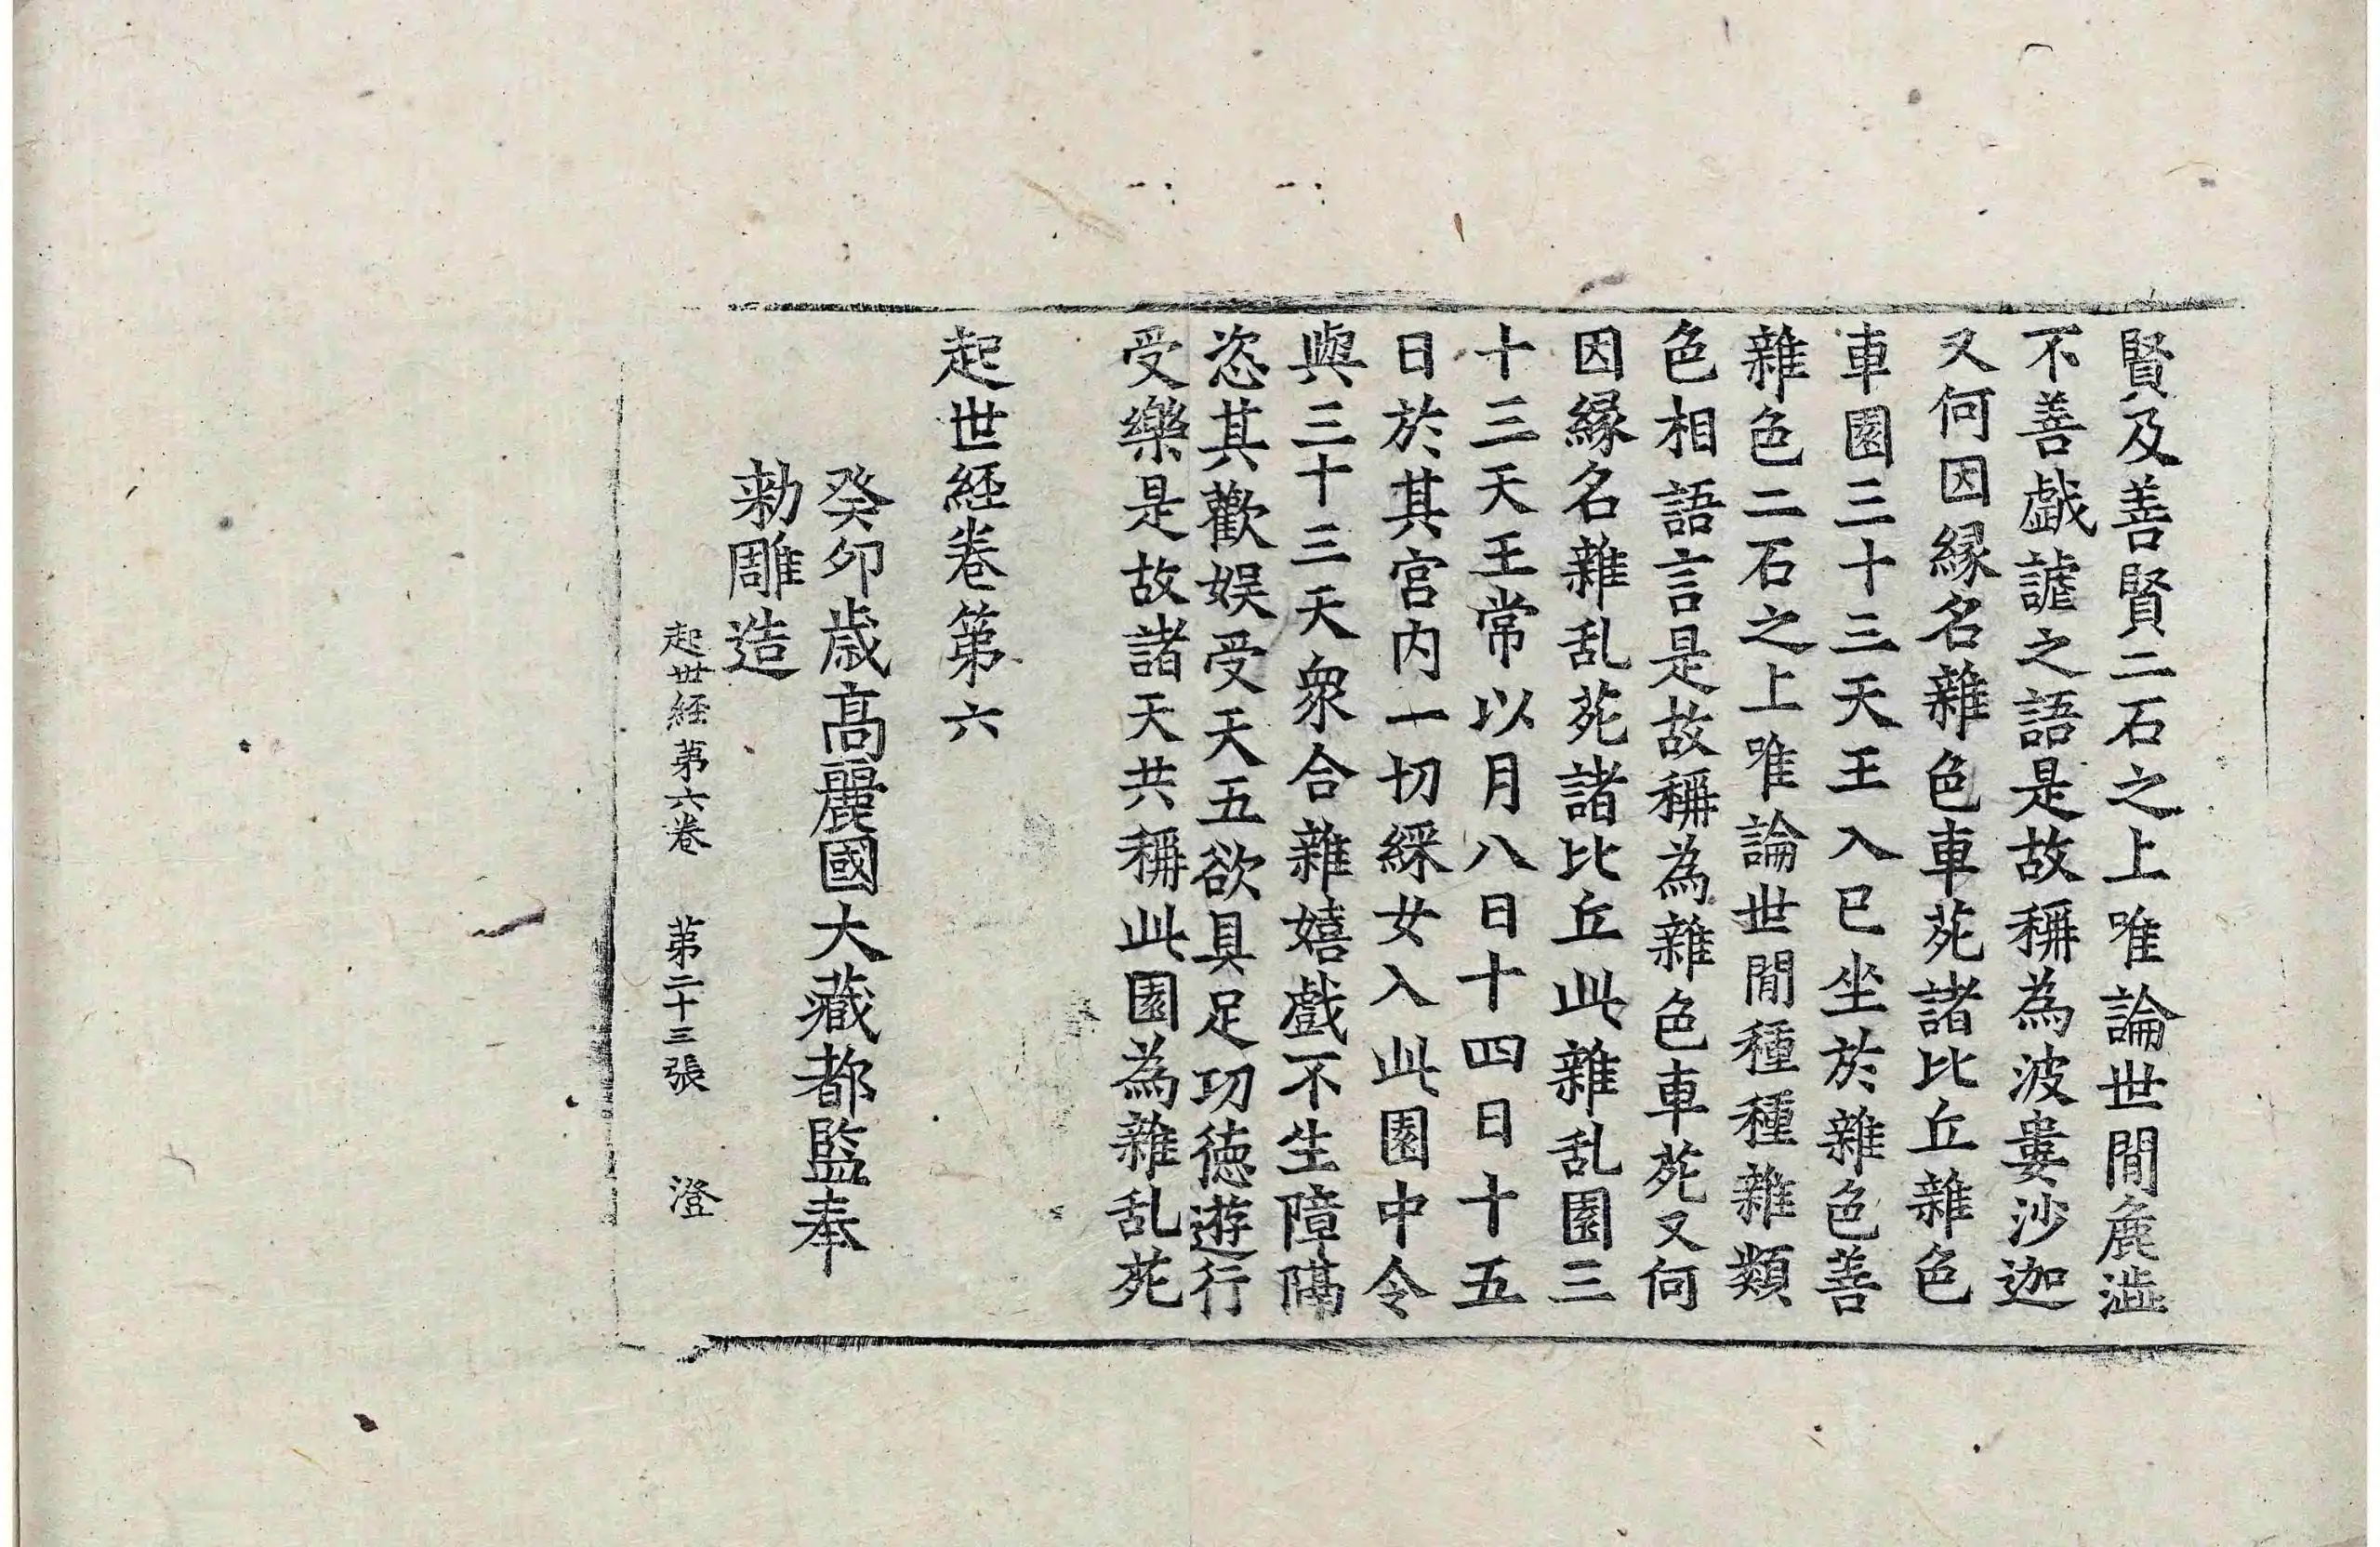 賢及善賢二石之上唯論世間麁澁
不善戱謔之語是故稱為波婁沙迦
又何因縁名雜色車苑諸比丘雜色
車園三十三天王入已坐於雜色善
雜色二石之上唯論世間種種雜類
色相語言是故稱為雜色車苑又何
因縁名雜乱苑諸比丘此雜乱園三
十三天王常以月八日十四日十五
日於其宮内一切綵女入此園中令
與三十三天衆合雜嬉戲不生障隔
恣其歡娱受天五欲具足功徳遊行
受樂是故諸天共稱此園為雜乱苑
起世経卷第六
癸卯歳高麗國大藏都監奉
勅雕造
起世経第六卷 第二十三張 澄